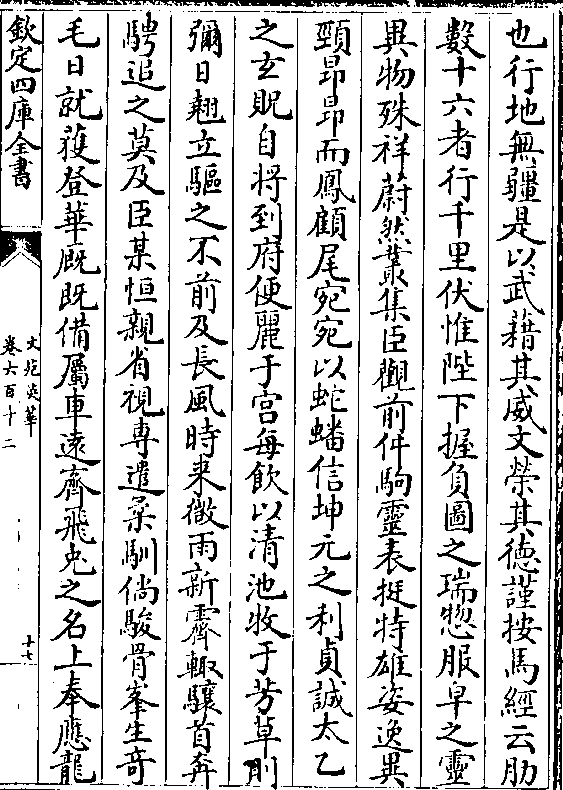 也行地無疆是以武藉其威文榮其德謹按馬經云肋
數十六者行千里伏惟陛下握負圖之瑞惣服皁之靈
異物殊祥蔚然叢集臣觀前件駒靈表挺特雄姿逸異
頸昂昂而鳳顧尾宛宛以蛇蟠信坤元之利貞誠太乙
之玄貺自將到府便麗于宫每飲以清池牧于芳草則
彌日翹立驅之不前及長風時来微雨新霽輙驤首奔
騁追之莫及臣某恒親省視専遣柔馴倘駿骨峯生竒
毛日就蒦登華厩既備屬車逺齊飛兎之名上奉應龍
欽定四庫全書
文苑英華
卷六百十二
十七